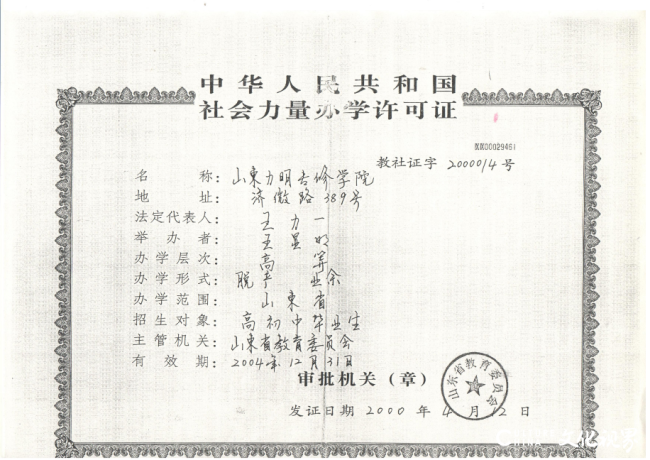 中华人民共和国
社会力量办学许可证
NK00029461
教社证字 2000014号
名称：山东力明专修学院
地址：济微路389号
法定代表人：王力一
举办者：王显明
办学层次：高等
办学形式：脱产 业余
办学范围：山东省
招生对象：高初中毕业生
主管机关：山东省教育委员会
有效期：2004年12月31日
审批机关（章）
山东省教育委员会
发证日期 2000 年 4 月 12 日